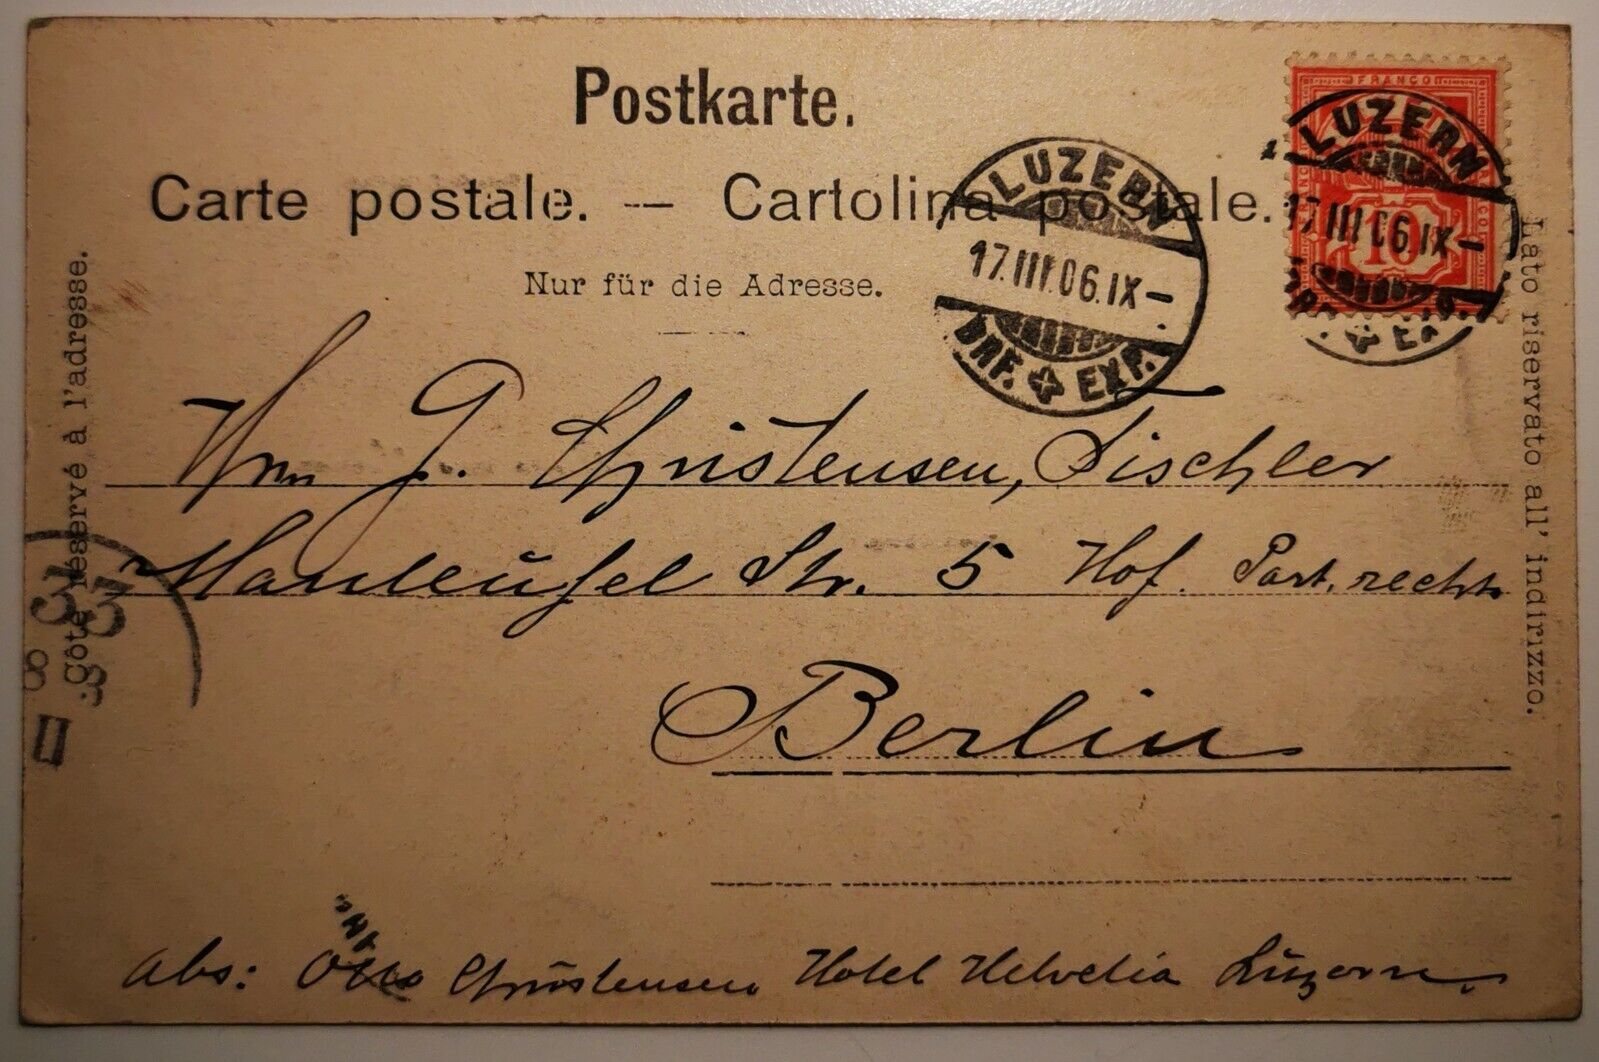 Postkarte.
Carte postale. — Cartolina postale.
Nur für die Adresse.
Côté réservé à l'adresse.
Lato riservato all' indirizzo.
FRANCO
10
LUZERN
17.III.06.IX-
BRF. EXP.
LUZERN
17.III.06.IX-
EXP.
Hrn G. Christensen, Tischler
Manteufel Str. 5 Hof. Part. rechts
Berlin
abs: Otto Christensen Hotel Helvetia Luzern.